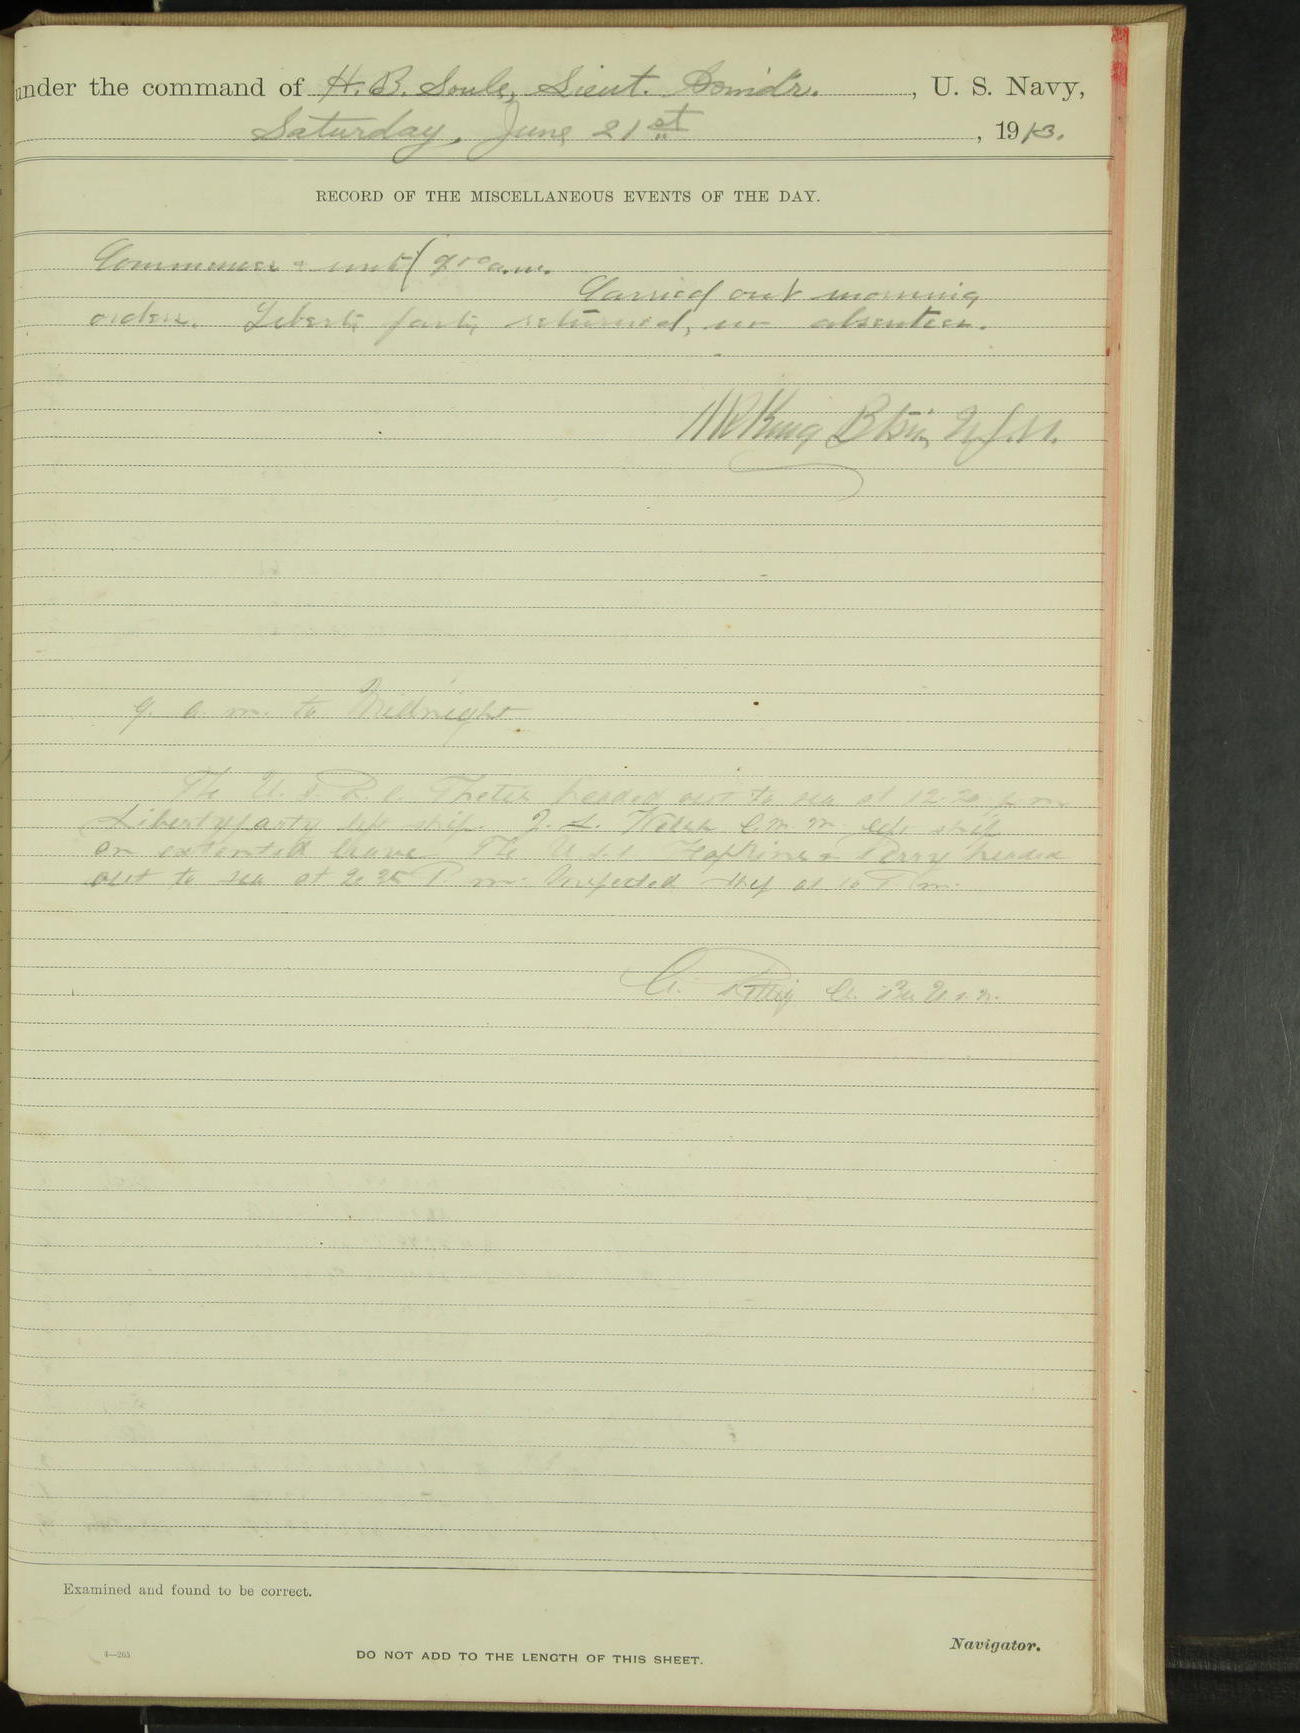 under the command of H. B. Soule, Lieut. Comd'r. , U. S. Navy,
Saturday, June 21st , 1913.
RECORD OF THE MISCELLANEOUS EVENTS OF THE DAY.
Commences & until 9 00 a.m.
Carried out morning
orders. Liberty party returned, no absentees.
King Btsn U.S.N.
9. a. m. to Midnight
The U. S. R. C. Thetis headed out to sea at 12.20 p m
Liberty party left ship. Welsh C.M.M. left ship
on extended leave The U.S.S. Hopkins & Perry headed
out to sea at P. m. Inspected ship at 10 P. m.
U.S.N.
Examined and found to be correct.
Navigator.
4—265
DO NOT ADD TO THE LENGTH OF THIS SHEET.